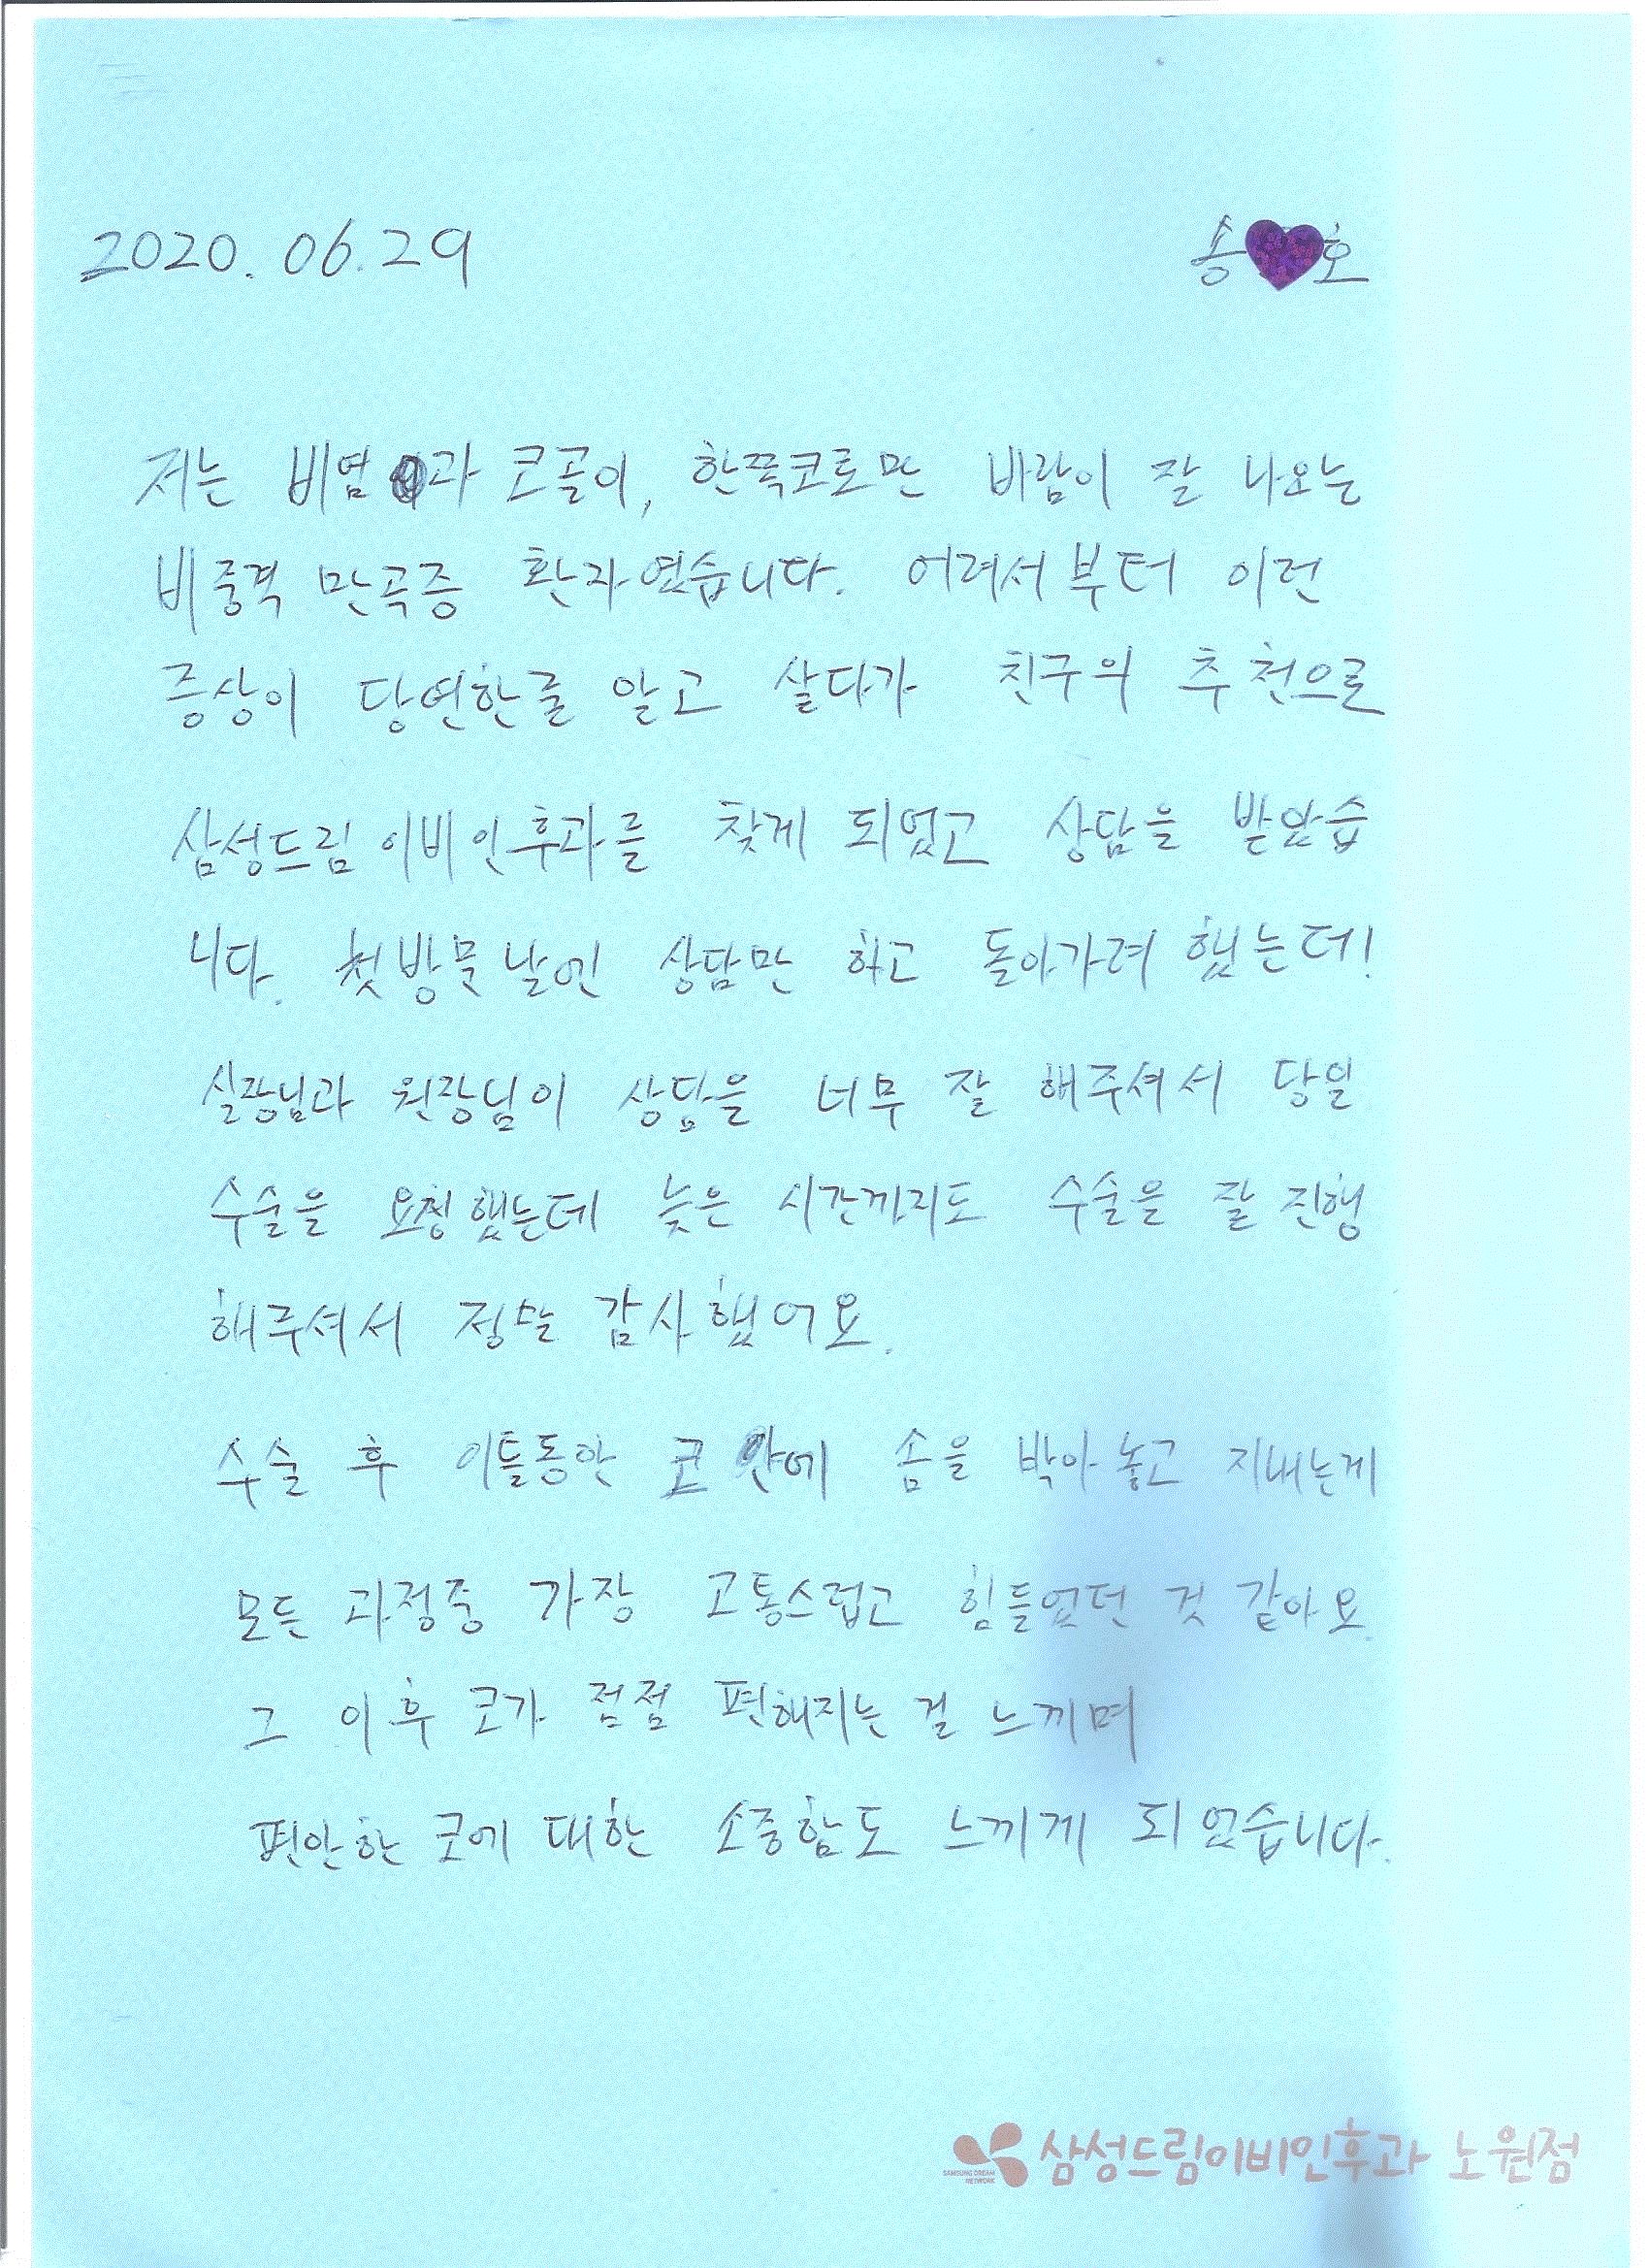 2020. 06. 29
송 호
저는 비염과 코골이, 한쪽코로만 바람이 잘 나오는
비중격 만곡증 환자였습니다. 어려서부터 이런
증상이 당연한줄 알고 살다가 친구의 추천으로
삼성드림이비인후과를 찾게 되었고 상담을 받았습
니다. 첫방문날엔 상담만 하고 돌아가려 했는데!
실장님과 원장님이 상담을 너무 잘 해주셔서 당일
수술을 요청했는데 늦은 시간까지도 수술을 잘 진행
해주셔서 정말 감사했어요.
수술 후 이틀동안 코 안에 솜을 박아 놓고 지내는게
모든 과정중 가장 고통스럽고 힘들었던 것 같아요.
그 이후 코가 점점 편해지는 걸 느끼며
편안한 코에 대한 소중함도 느끼게 되었습니다.
삼성드림이비인후과 노원점
SAMSUNG DREAM
NETWORK